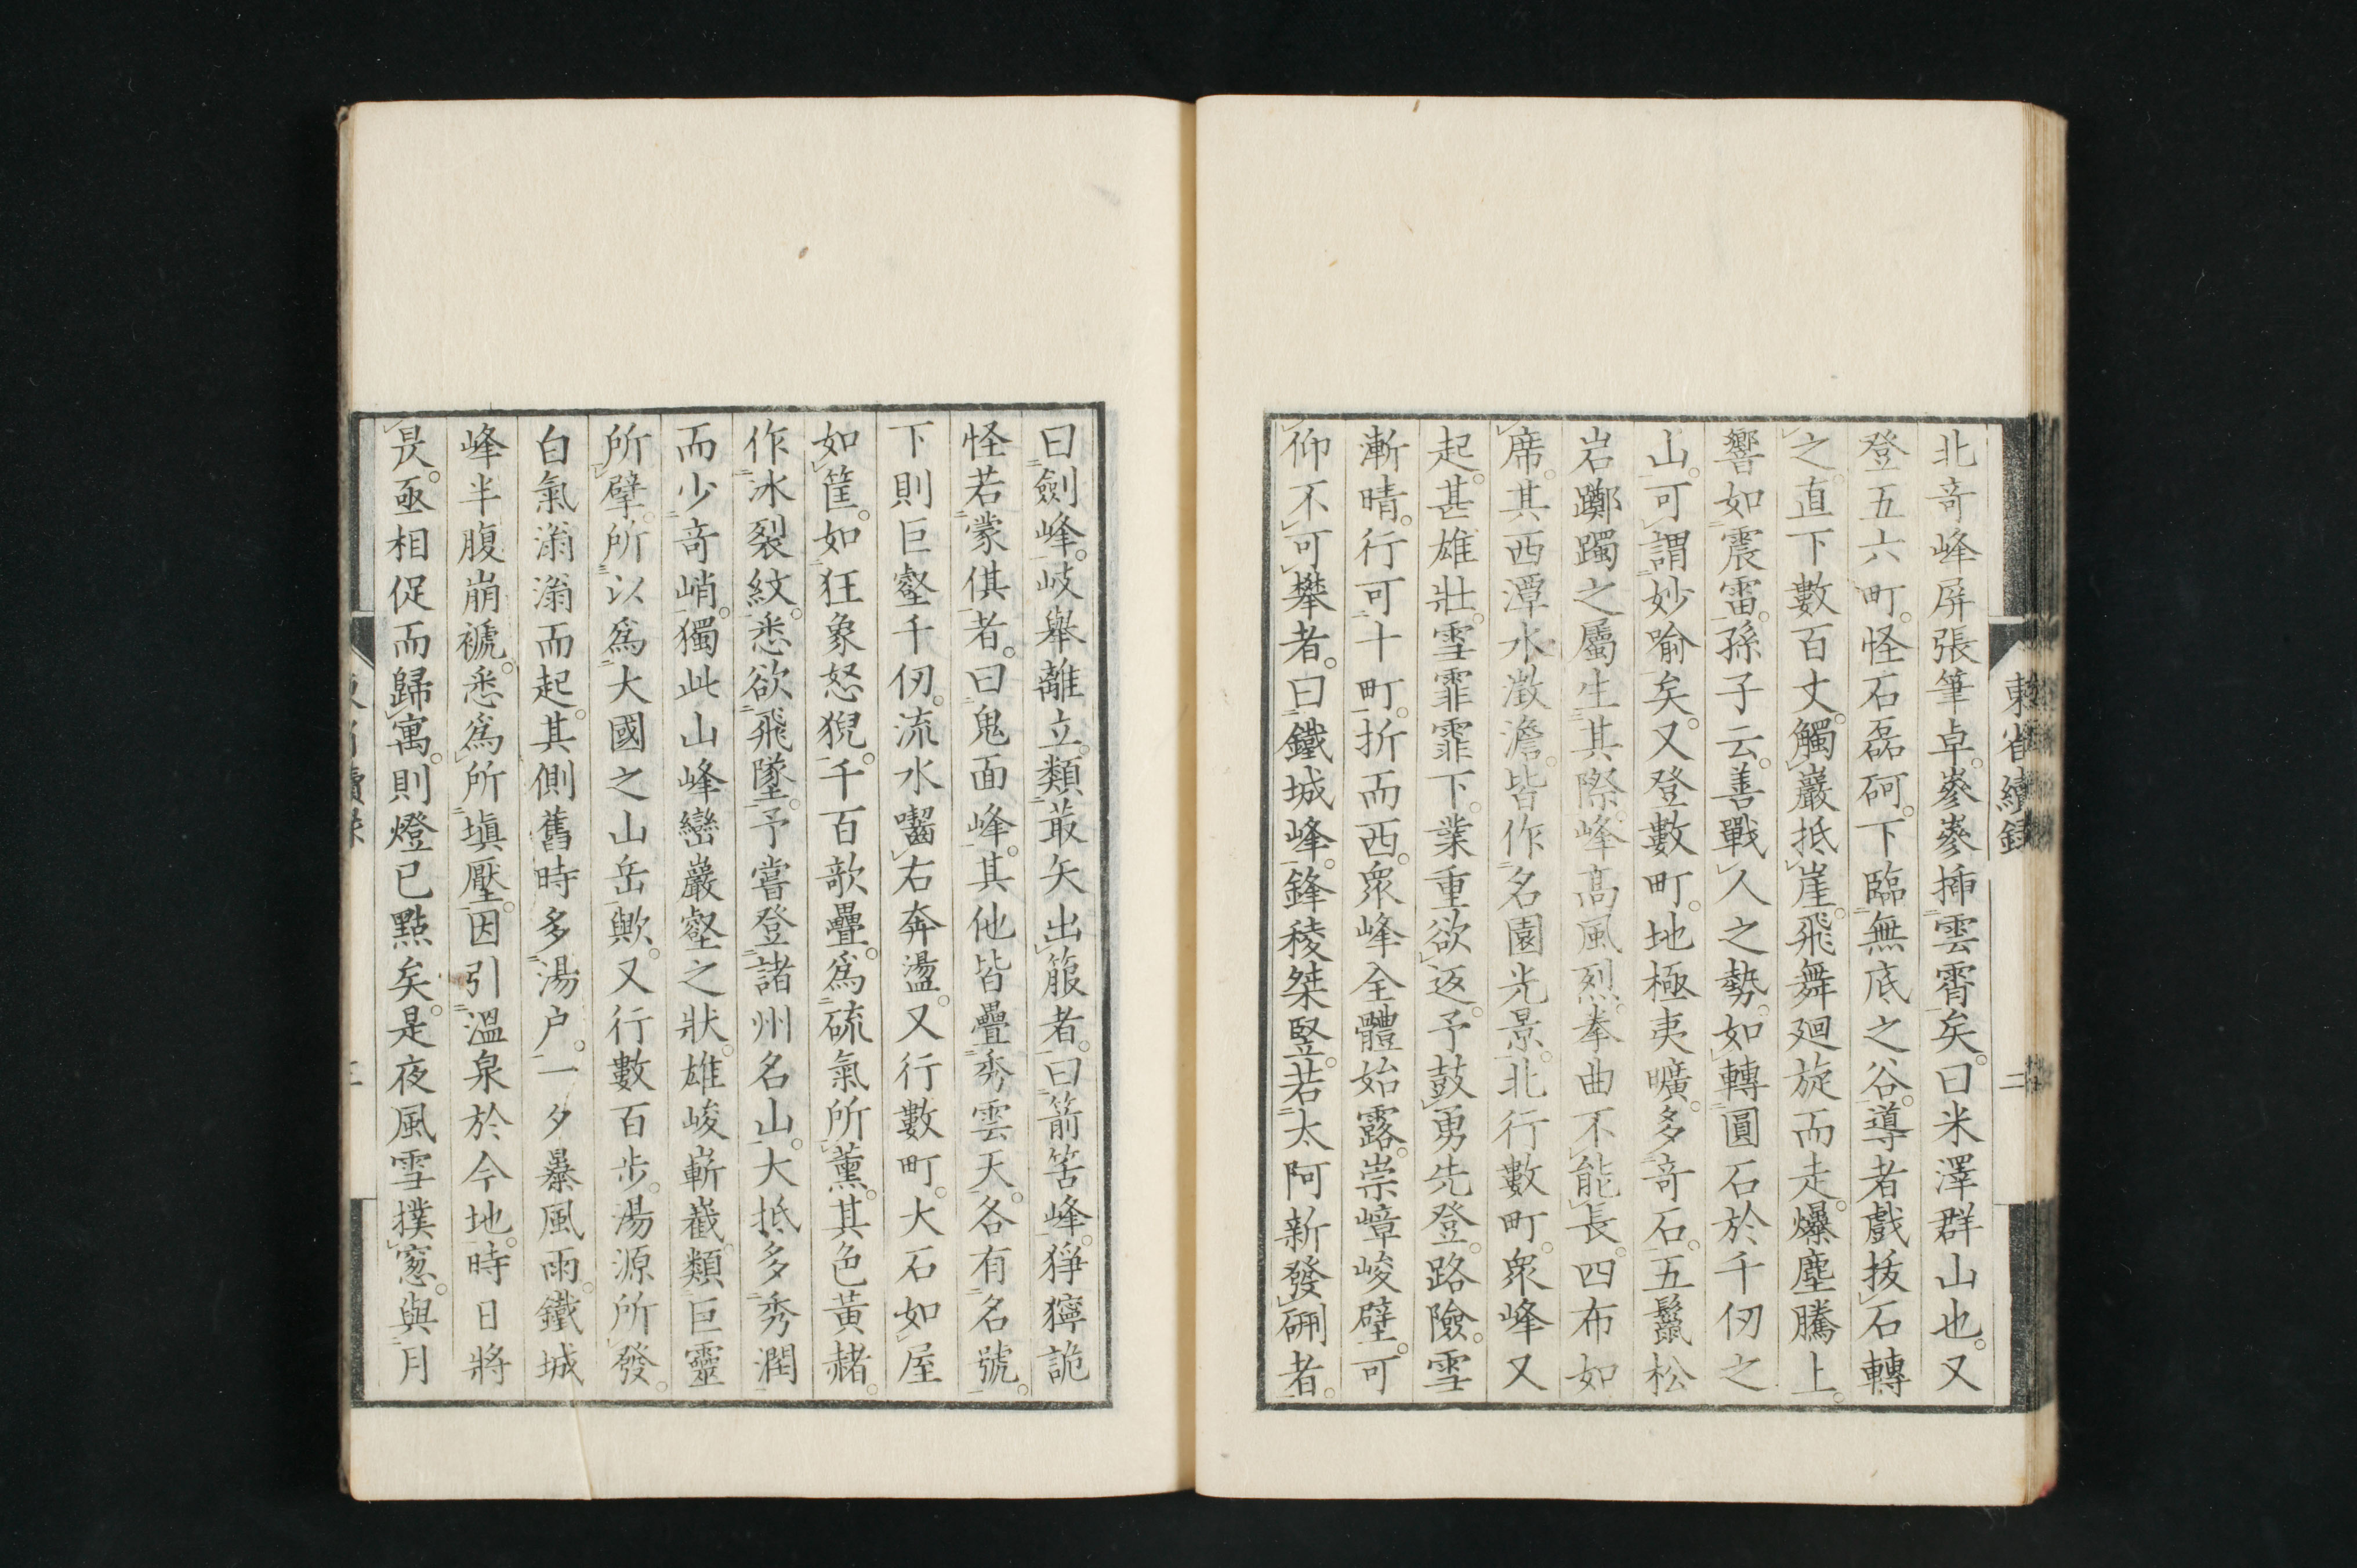 東省續録
二
北奇峰屏張筆卓。嵾嵾挿雲霄矣。曰米澤群山也。又
登五六町。怪石磊砢。下臨無底之谷。導者戲抜石轉
之。直下數百丈。觸巖抵崖。飛舞廻旋而走。爆塵騰上。
響如震雷。孫子云。善戰人之勢。如轉圓石於千仞之
山。可謂妙喻矣。又登數町。地極夷曠。多奇石。五鬣松
岩躑躅之屬生其際。峰高風烈。拳曲不能長。四布如
席。其西潭水澂澹。皆作名園光景。北行數町。衆峰又
起。甚雄壯。雪霏霏下。業重欲返。予鼓勇先登。路險。雪
漸晴。行可十町。折而西。衆峰全體始露。崇嶂峻壁。可
仰不可攀者。曰鐵城峰。鋒稜桀竪。若太阿新發硎者。
曰劍峰。岐舉離立。類菆矢出箙者。曰箭筈峰。猙獰詭
怪若蒙倛者。曰鬼面峰。其他皆疊秀雲天。各有名號。
下則巨壑千仞。流水囓右奔盪。又行數町。大石如屋
如筐。如狂象怒猊。千百歕疊。爲硫氣所薰。其色黃赭。
作冰裂紋。悉欲飛墜。予嘗登諸州名山。大抵多秀潤
而少奇峭。獨此山峰巒巖壑之狀。雄峻嶄嶻。類巨靈
所擘。所以爲大國之山岳歟。又行數百步。湯源所發。
白氣滃滃而起。其側舊時多湯户。一夕暴風雨。鐵城
峰半腹崩褫。悉爲所塡壓。因引溫泉於今地。時日將
昃。亟相促而歸寓。則燈已點矣。是夜風雪撲窓。與月